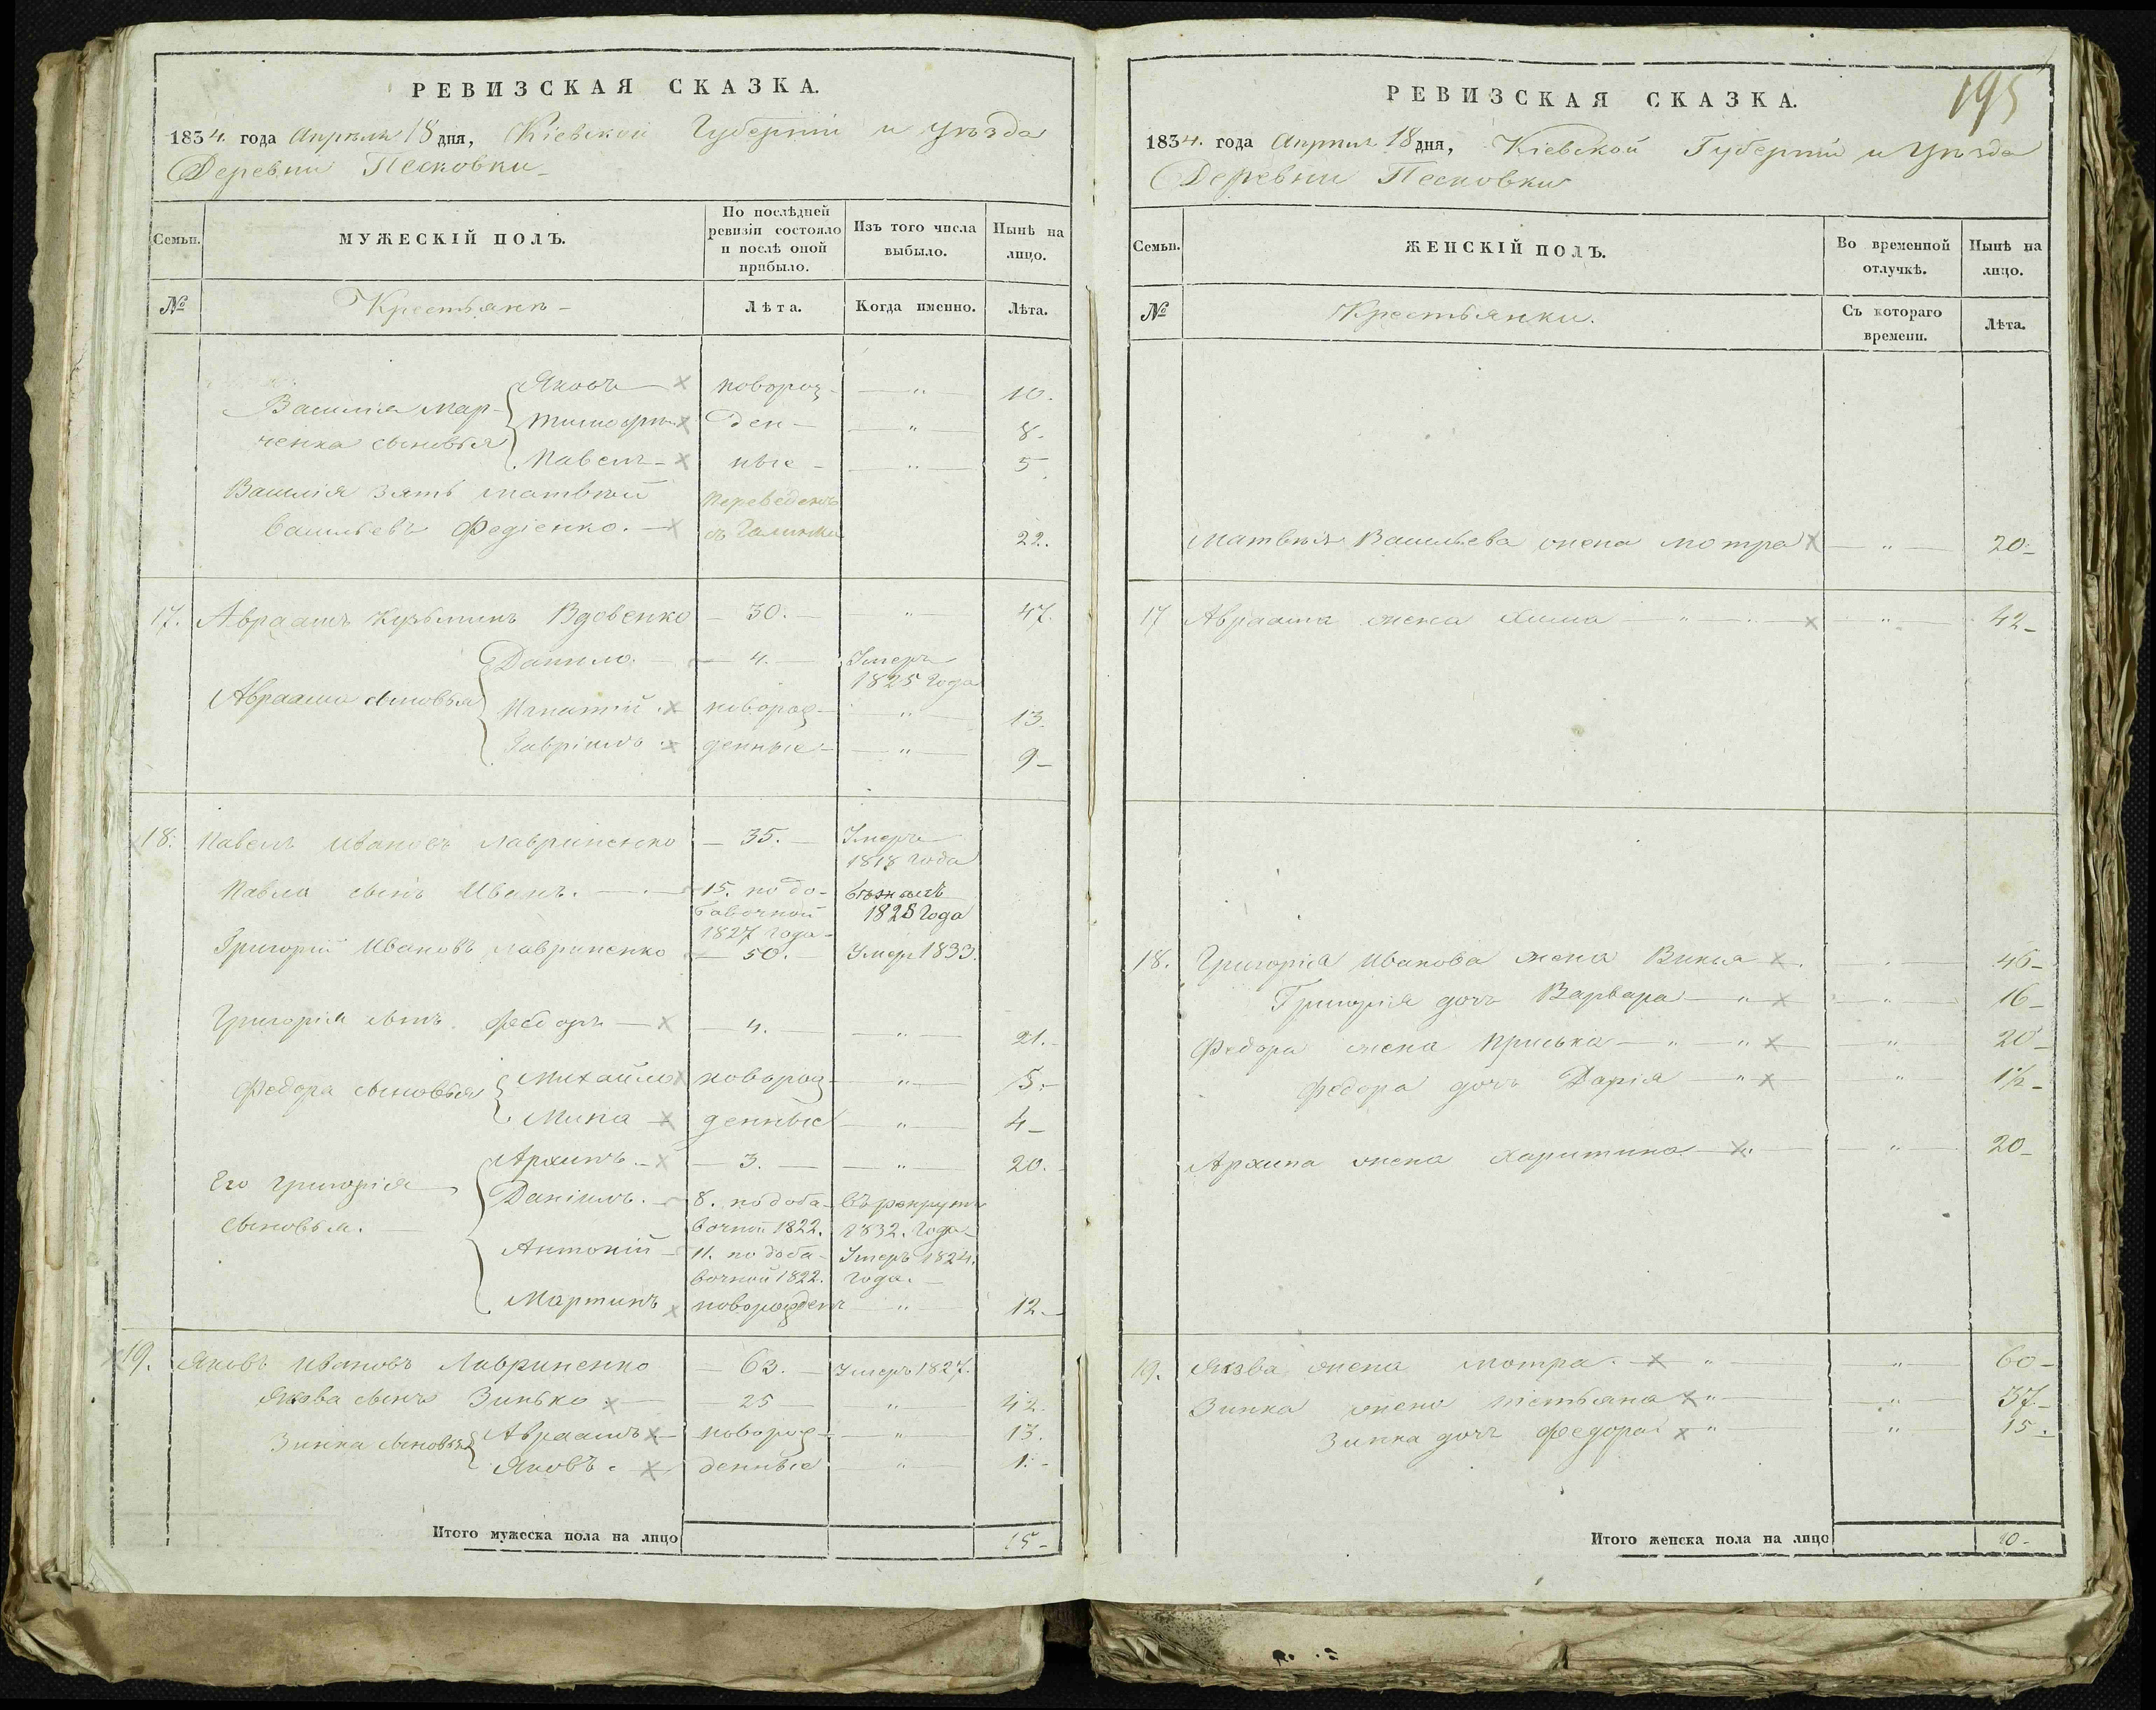 РЕВИЗСКАЯ СКАЗКА.
1834. года Апреля 18 дня, Кіевской Губерніи и уезда
Деревни Песковки
Семьи. МУЖЕСКІЙ ПОЛЪ. По послѣдней ревизіи состояло и послѣ оной прибыло. Изъ того числа выбыло. Нынѣ на лицо.
№ Крестьянъ Лѣта. Когда именно. Лѣта.
Яковъ новорож- 10.
Василія Мар- Тимофей ден- 8.
ченка сыновья Павелъ ные 5
Василія зять Матвей Переведенъ
Васильевъ Федіенко. съ 22.
17. Авраамъ Кузьминъ Вдовенко 30. 47.
Данило 4. Умеръ
1825 года
Авраама сыновья Игнатій новорож- 13
Гавріилъ денные 9
18. Павелъ Ивановъ Лавриненко 35. Умеръ
1818 года
Павла сынъ Иванъ. 15. по до-
бавочной 1828 года
1827 года
Григорій Ивановъ Лавриненко 50. Умеръ 1833.
Григорія сынъ Федоръ 4. 21.
Федора сыновья Михайло новорож- 5.
Мина денные 4
Архипъ 3. 20.
Его Григорія Даніилъ. 8. по доба- въ рекруты
сыновья. вочной 1822. 1832. года
Антоній 11. по доба- Умеръ 1824.
вочной 1822. года.
Мартинъ новорожден 12.
19. Яковъ Ивановъ Лавриненко 63. Умеръ 1827.
Якова сынъ Зинько 25 42.
Зинка сыновья Авраамъ новорож- 13.
Яковъ денные 1.
Итого мужеска пола на лицо 15
195
РЕВИЗСКАЯ СКАЗКА.
1834. года Апреля 18 дня, Кіевской Губерніи и уезда
Деревни Песковки
Семьи. ЖЕНСКІЙ ПОЛЪ. Во временной отлучкѣ. Нынѣ на лицо.
№ Крестьянки. Съ котораго времени. Лѣта.
Матвея Васильева жена Мотра 20
17 Авраама жена Хима 42
18. Григорія Иванова жена 46
Григорія дочь Варвара 16
Федора жена Приська 20
Федора дочь Дарія 1½
Архипа жена Харитина 20
19. Якова жена Мотра. 60
Зинка жена Тетьяна 37.
Зинка дочь Федора 15
Итого женска пола на лицо 10